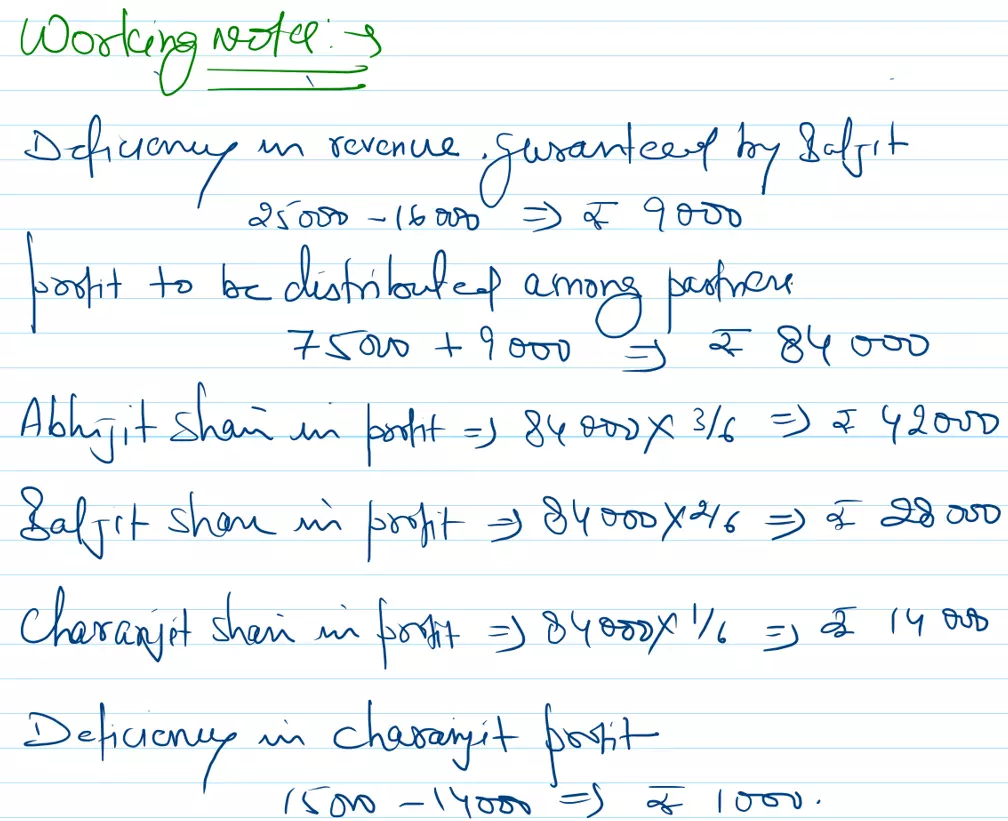 Working note:→
Deficiency in revenue guranteed by Baljit
25000 - 16000 ⇒ ₹ 9000
profit to be distributed among partners
75000 + 9000 ⇒ ₹ 84000
Abhijit share in profit ⇒ 84000 × 3/6 ⇒ ₹ 42000
Baljit share in profit ⇒ 84000 × 2/6 ⇒ ₹ 28000
Charanjit share in profit ⇒ 84000 × 1/6 ⇒ ₹ 14000
Deficiency in charanjit profit
15000 - 14000 ⇒ ₹ 1000.